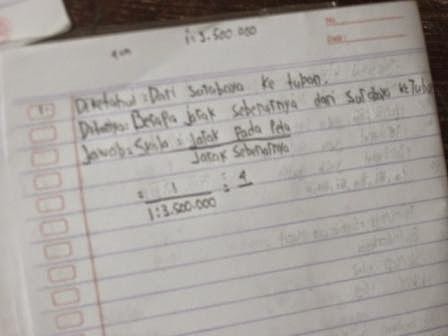 4 cm 1:3.500.000
No.
Date:
1. Diketahui : Dari surabaya ke tuban.
Ditanya: Berapa jarak sebenarnya dari surabaya ke Tuban
Jawab: Skala = Jarak Pada Peta
Jarak Sebenarnya
= 1 = 4
1:3.500.000